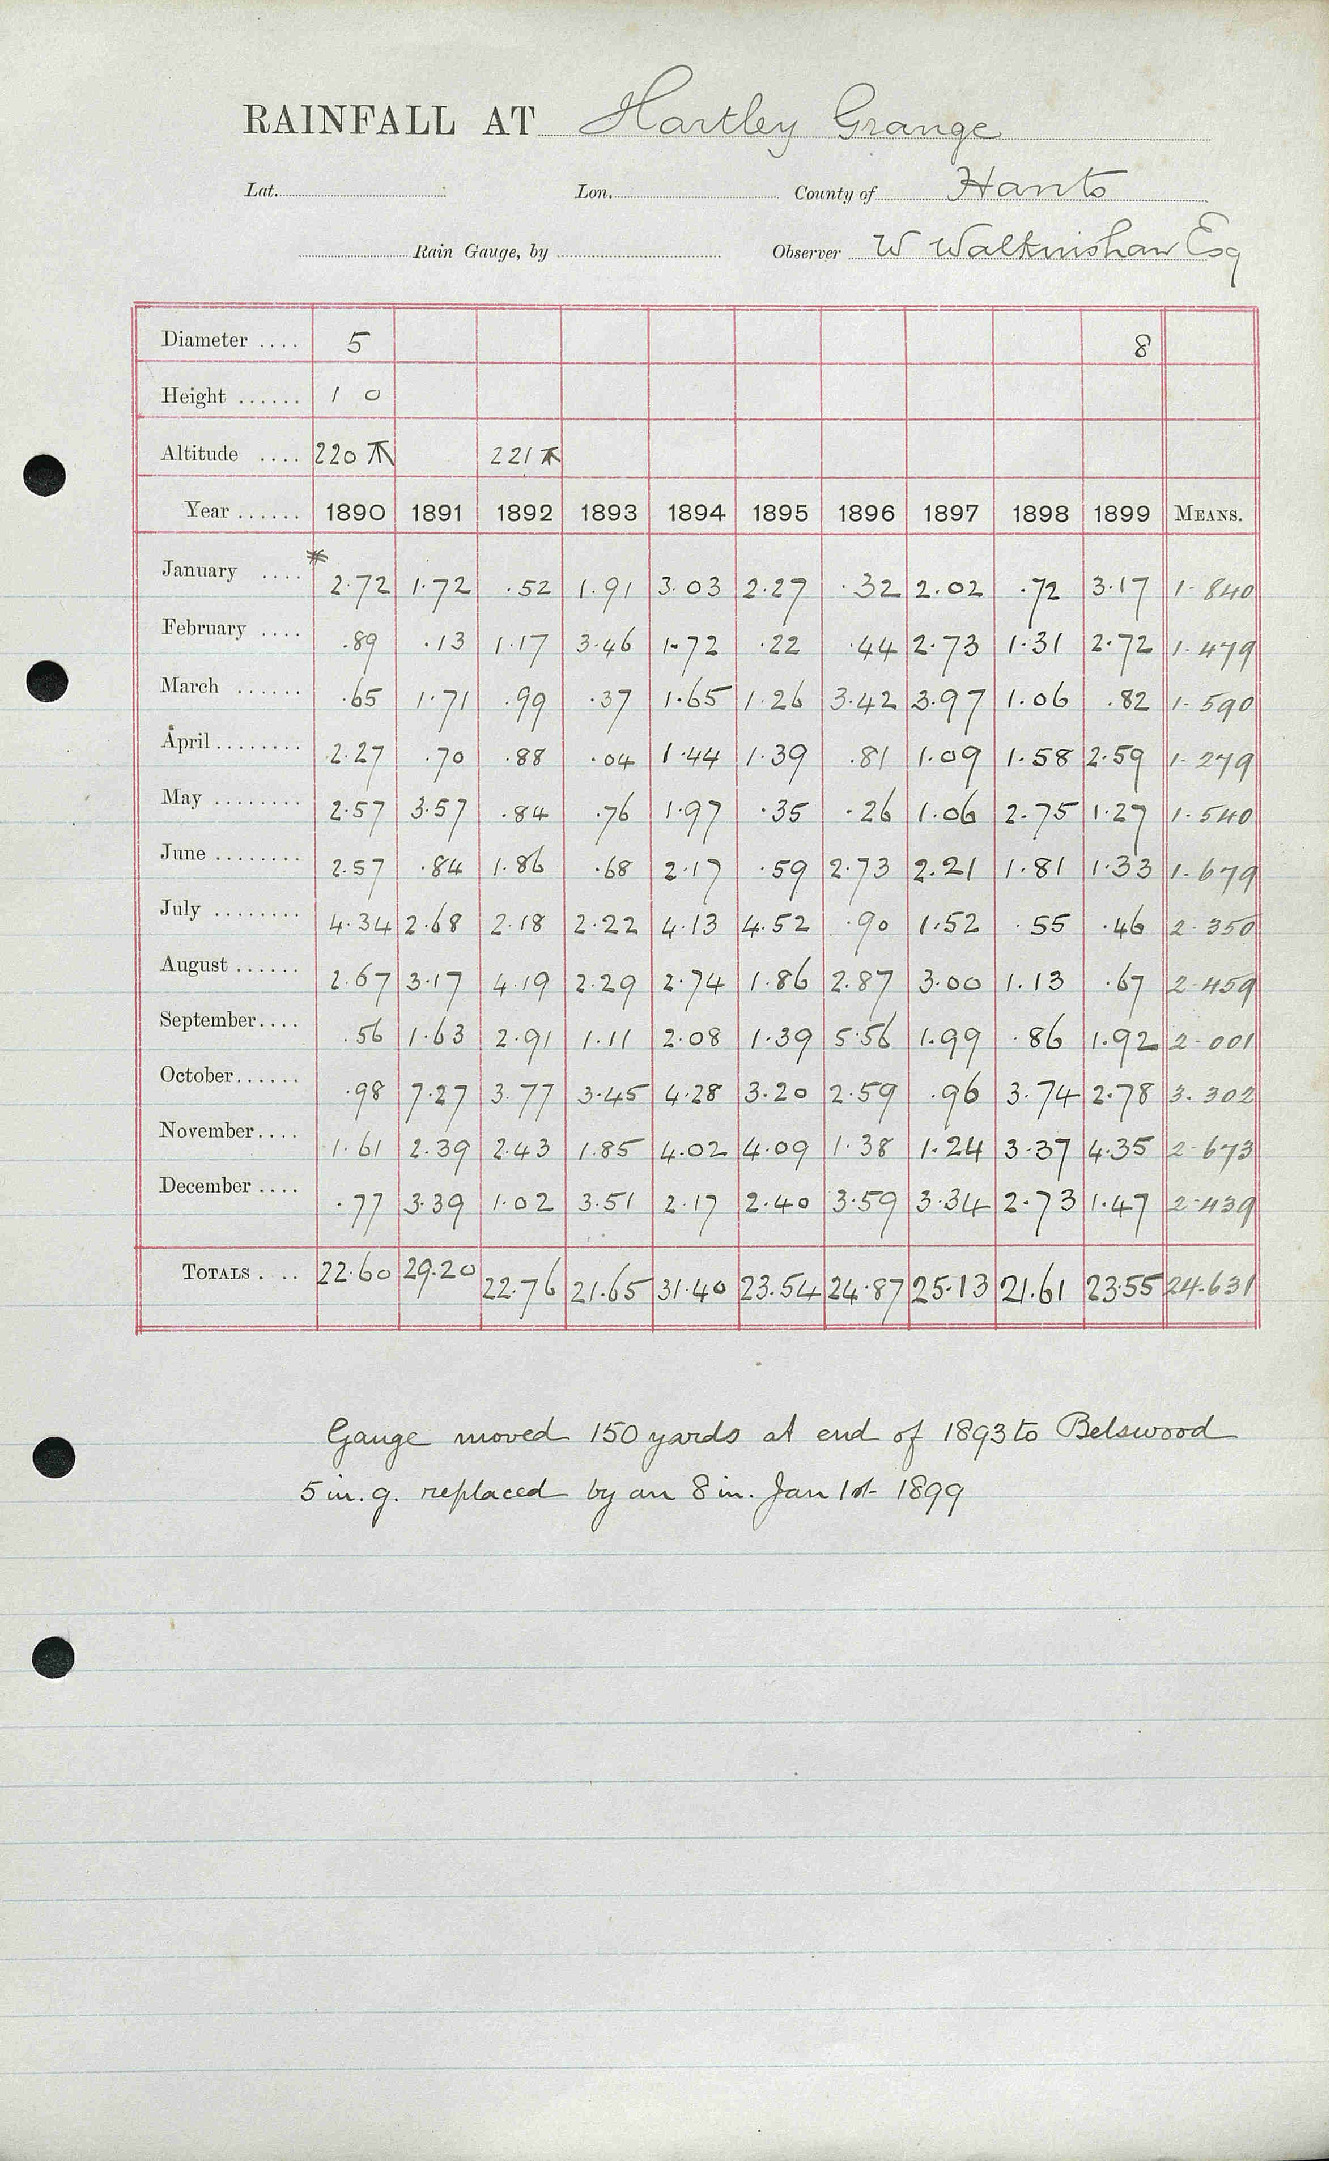 RAINFALL AT Hartley Grange
Lat. Lon. County of Hants
Rain Gauge, by Observer W Walkinshaw Esq
Diameter .... 5 8
Height ...... 1 0
Altitude .... 220 221
Year ...... 1890 1891 1892 1893 1894 1895 1896 1897 1898 1899 MEANS.
January .... * 2.72 1.72 .52 1.91 3.03 2.27 .32 2.02 .72 3.17 1.840
February .... .89 .13 1.17 3.46 1.72 .22 .44 2.73 1.31 2.72 1.479
March ...... .65 1.71 .99 .37 1.65 1.26 3.42 3.97 1.06 .82 1.590
April ........ 2.27 .70 .88 .04 1.44 1.39 .81 1.09 1.58 2.59 1.279
May ........ 2.57 3.57 .84 .76 1.97 .35 .26 1.06 2.75 1.27 1.540
June ........ 2.57 .84 1.86 .68 2.17 .59 2.73 2.21 1.81 1.33 1.679
July ........ 4.34 2.68 2.18 2.22 4.13 4.52 .90 1.52 .55 .46 2.350
August ...... 2.67 3.17 4.19 2.29 2.74 1.86 2.87 3.00 1.13 .67 2.459
September .... .56 1.63 2.91 1.11 2.08 1.39 5.56 1.99 .86 1.92 2.001
October ...... .98 7.27 3.77 3.45 4.28 3.20 2.59 .96 3.74 2.78 3.302
November .... 1.61 2.39 2.43 1.85 4.02 4.09 1.38 1.24 3.37 4.35 2.673
December .... .77 3.39 1.02 3.51 2.17 2.40 3.59 3.34 2.73 1.47 2.439
TOTALS . .. 22.60 29.20 22.76 21.65 31.40 23.54 24.87 25.13 21.61 23.55 24.631
Gauge moved 150 yards at end of 1893 to Belswood
5 in. g. replaced by an 8 in. Jan 1st 1899